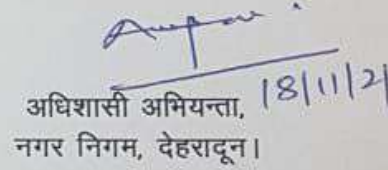 अधिशासी अभियन्ता, 18/11/21
नगर निगम, देहरादून।